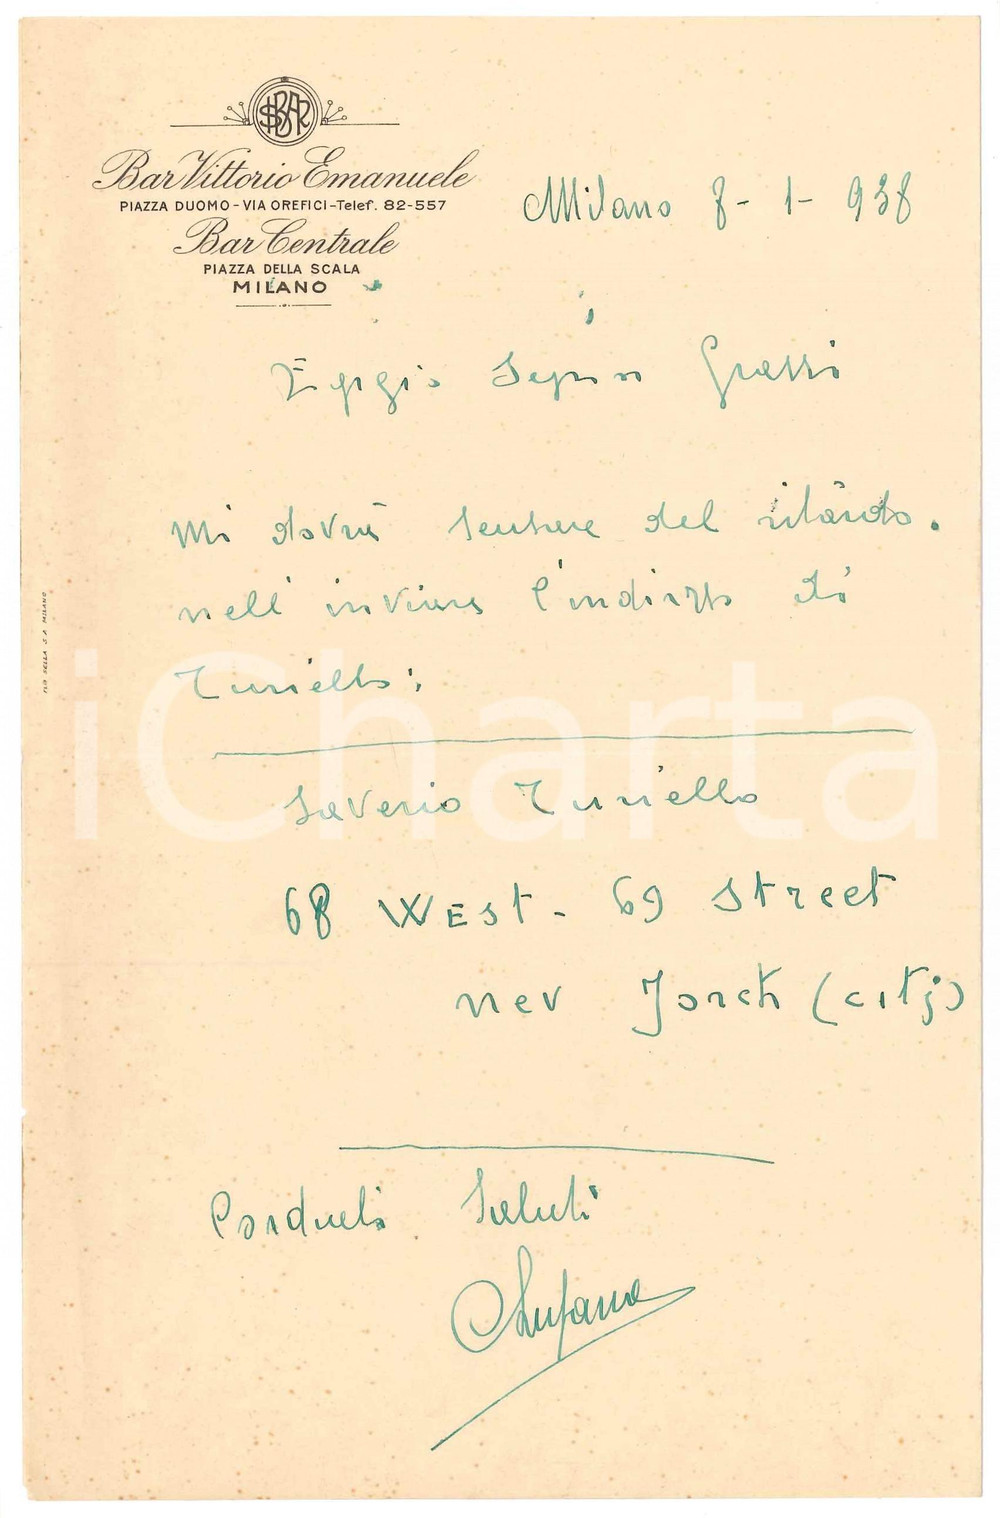 SBAR
Bar Vittorio Emanuele
PIAZZA DUOMO - VIA OREFICI - Telef. 82-557
Bar Centrale
PIAZZA DELLA SCALA
MILANO
Milano 8-1-938
Egregio Signor Grassi
Mi dovrà scusare del ritardo.
nell'inviare l'indirizzo di
Turiello:
Saverio Turiello
68 WEST - 69 Street
nev Jorck (citj)
Cordiali Saluti
iCharta